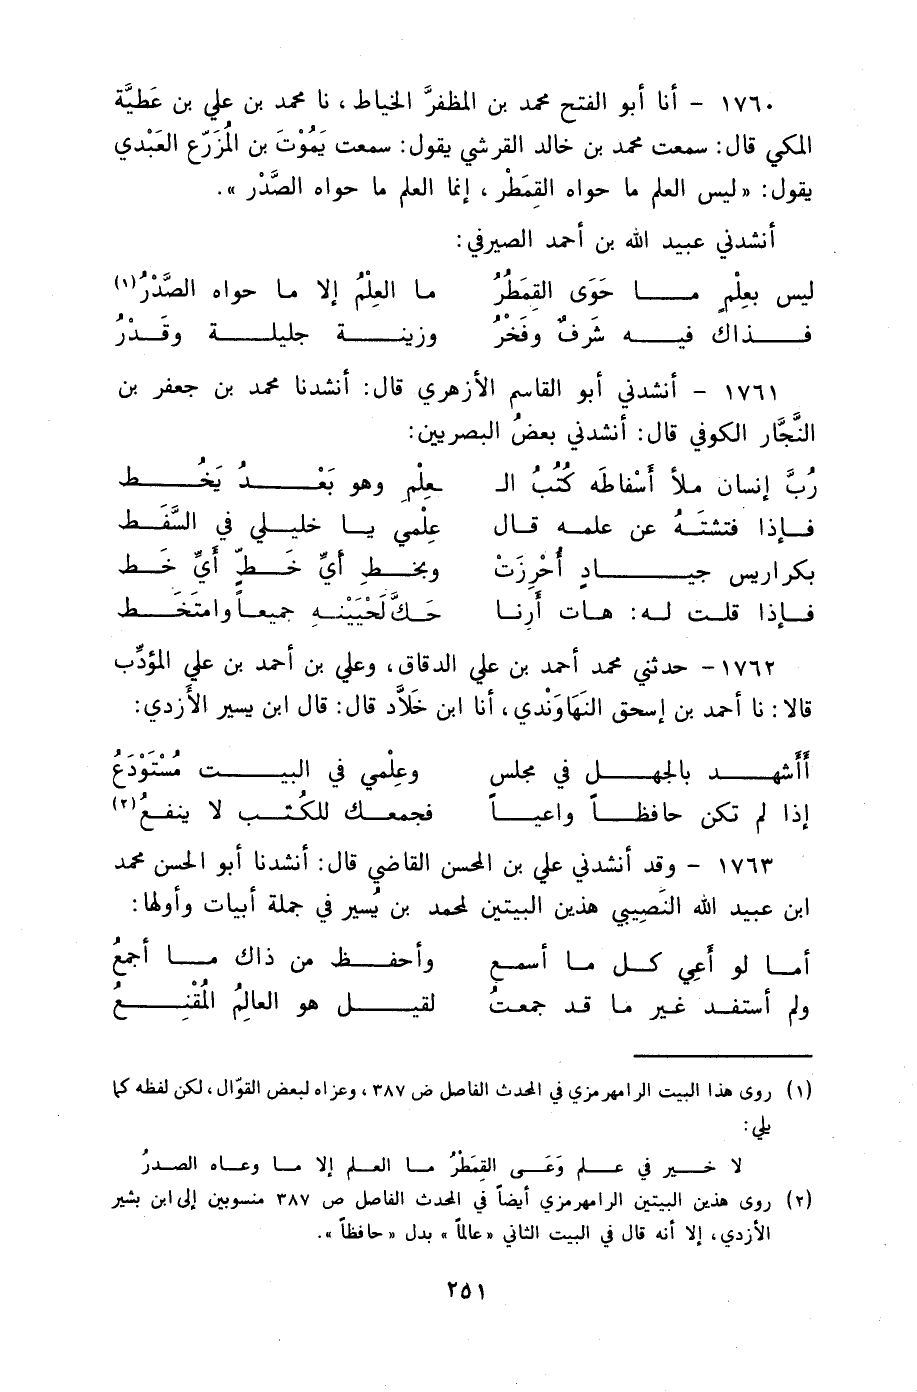 ١٧٦٠ - أنا أبو الفتح محمد بن المظفَّر الخياط، نا محمد بن علي بن عَطيَّة
المكي قال: سمعت محمد بن خالد القرشي يقول: سمعت يَمُوْتَ بن المُزَرّع العَبْدي
يقول: «ليس العلم ما حواه القِمَطْر، إنما العلم ما حواه الصَّدْر».
أنشدني عبيد الله بن أحمد الصيرفي:
ليس بعِلْمٍ مـا حَوَى القِمَطْرُ ما العِلْمُ إلا ما حواه الصَّدْرُ(١)
فـذاك فيـه شَرفٌ وفَخْرُ وزينـة جليلـة وقَـدْرُ
١٧٦١ - أنشدني أبو القاسم الأزهري قال: أنشدنا محمد بن جعفر بن
النَّجَّار الكوفي قال: أنشدني بعضُ البصريين:
رُبَّ إنسان ملأ أَسْفاطَه كُتُبُ الـ ـعِلْمِ وهو بَعْـدُ يَخُـط
فـإذا فتشتَـهُ عن علمـه قـال عِلْمي يـا خليلي في السَّفَـط
بكراريس جيـادٍ أُحْرِزَتْ وبخـطٍ أيِّ خَـطٍّ أَيِّ خَـط
فـإذا قلـت لـه: هـات أَرِنـا حَـكَّ لَحْيَيْنِـهِ جميعـاً وامتَخَـط
١٧٦٢- حدثني محمد أحمد بن علي الدقاق، وعلي بن أحمد بن علي المؤدِّب
قالا: نا أحمد بن إسحق النَهَاوَنْدي، أنا ابن خَلاَّد قال: قال ابن يسير الأزدي:
أَأَشهـد بالجهـل في مجلس وعِلْمي في البيـت مُسْتَوْدَعُ
إذا لم تكن حافظـاً واعيـاً فجمعـك للكُتـب لا ينفـعُ(٢)
١٧٦٣ - وقد أنشدني علي بن المحسن القاضي قال: أنشدنا أبو الحسن محمد
ابن عبيد الله النَصِيبي هذين البيتين لمحمد بن يُسير في جملة أبيات وأولها:
أمـا لو أَعِي كـل مـا أسمـع وأحفـظ من ذاك مـا أجمعُ
ولم أستفـد غيـر ما قـد جمعـتُ لقيـل هو العالِمُ المُقْنِـعُ
(١) روى هذا البيت الرامهرمزي في المحدث الفاصل ص ٣٨٧، وعزاه لبعض القوّال، لكن لفظه كما
يلي:
لا خـير في علـم وَعَـى القِمَطْرُ مـا العلـم إلا مـا وعـاه الصـدرُ
(٢) روى هذين البيتين الرامهرمزي أيضاً في المحدث الفاصل ص ٣٨٧ منسوبين إلى ابن بشير
الأزدي، إلا أنه قال في البيت الثاني «عالماً» بدل «حافظاً».
٢٥١